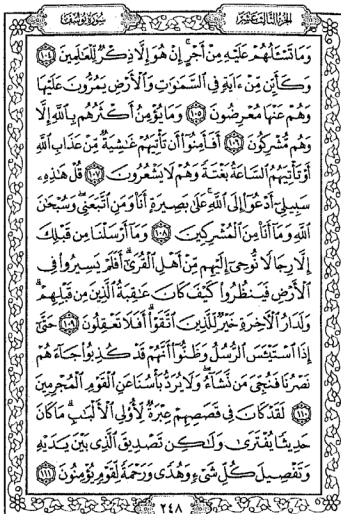 الجزء الثالث عشر
سورة يوسف
وَمَا تَسْـَٔلُهُمْ عَلَيْهِ مِنْ أَجْرٍ إِنْ هُوَ إِلَّا ذِكْرٌ لِّلْعَٰلَمِينَ ١٠٤
وَكَأَيِّن مِّنْ ءَايَةٍ فِى ٱلسَّمَٰوَٰتِ وَٱلْأَرْضِ يَمُرُّونَ عَلَيْهَا
وَهُمْ عَنْهَا مُعْرِضُونَ ١٠٥ وَمَا يُؤْمِنُ أَكْثَرُهُم بِٱللَّهِ إِلَّا
وَهُم مُّشْرِكُونَ ١٠٦ أَفَأَمِنُوٓا۟ أَن تَأْتِيَهُمْ غَٰشِيَةٌ مِّنْ عَذَابِ ٱللَّهِ
أَوْ تَأْتِيَهُمُ ٱلسَّاعَةُ بَغْتَةً وَهُمْ لَا يَشْعُرُونَ ١٠٧ قُلْ هَٰذِهِۦ
سَبِيلِىٓ أَدْعُوٓا۟ إِلَى ٱللَّهِ عَلَىٰ بَصِيرَةٍ أَنَا۠ وَمَنِ ٱتَّبَعَنِى وَسُبْحَٰنَ
ٱللَّهِ وَمَآ أَنَا۠ مِنَ ٱلْمُشْرِكِينَ ١٠٨ وَمَآ أَرْسَلْنَا مِن قَبْلِكَ
إِلَّا رِجَالًا نُّوحِىٓ إِلَيْهِم مِّنْ أَهْلِ ٱلْقُرَىٰٓ أَفَلَمْ يَسِيرُوا۟ فِى
ٱلْأَرْضِ فَيَنظُرُوا۟ كَيْفَ كَانَ عَٰقِبَةُ ٱلَّذِينَ مِن قَبْلِهِمْ
وَلَدَارُ ٱلْءَاخِرَةِ خَيْرٌ لِّلَّذِينَ ٱتَّقَوْا۟ أَفَلَا تَعْقِلُونَ ١٠٩ حَتَّىٰٓ
إِذَا ٱسْتَيْـَٔسَ ٱلرُّسُلُ وَظَنُّوٓا۟ أَنَّهُمْ قَدْ كُذِبُوا۟ جَآءَهُمْ
نَصْرُنَا فَنُجِّىَ مَن نَّشَآءُ وَلَا يُرَدُّ بَأْسُنَا عَنِ ٱلْقَوْمِ ٱلْمُجْرِمِينَ
١١٠ لَقَدْ كَانَ فِى قَصَصِهِمْ عِبْرَةٌ لِّأُو۟لِى ٱلْأَلْبَٰبِ مَا كَانَ
حَدِيثًا يُفْتَرَىٰ وَلَٰكِن تَصْدِيقَ ٱلَّذِى بَيْنَ يَدَيْهِ
وَتَفْصِيلَ كُلِّ شَىْءٍ وَهُدًى وَرَحْمَةً لِّقَوْمٍ يُؤْمِنُونَ ١١١
٢٤٨